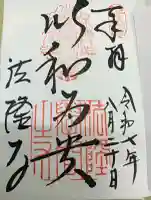 奉拝
令和七年
八月二十日
以和為貴
法隆寺